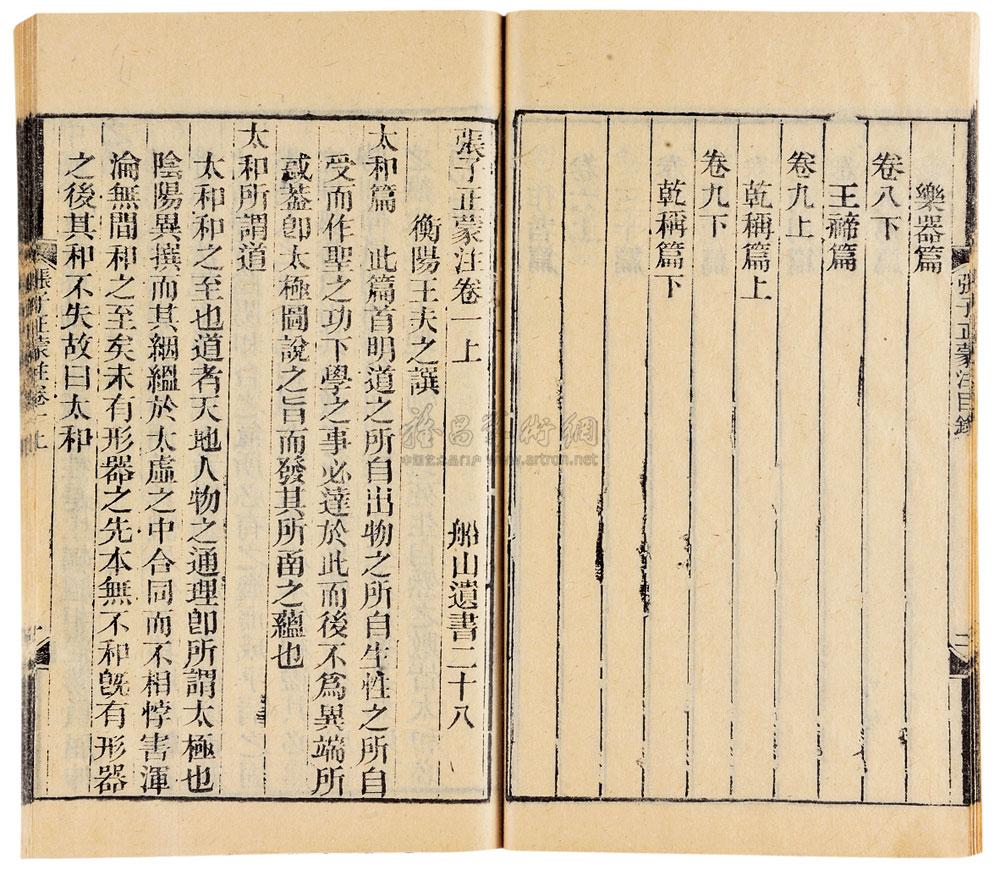 樂器篇
卷八下
王禘篇
卷九上
乾稱篇上
卷九下
乾稱篇下
張子正蒙注目錄
二
張子正蒙注卷一上
船山遺書二十八
衡陽王夫之譔
太和篇 此篇首明道之所自出物之所自生性之所自
受而作聖之功下學之事必達於此而後不爲異端所
惑葢卽太極圖說之旨而發其所函之蘊也
太和所謂道
太和和之至也道者天地人物之通理卽所謂太極也
陰陽異撰而其絪縕於太虛之中合同而不相悖害渾
淪無間和之至矣未有形器之先本無不和旣有形器
之後其和不失故曰太和
張子正蒙注卷一上
一
雅昌艺术網
中国艺术品门户 www.artron.net